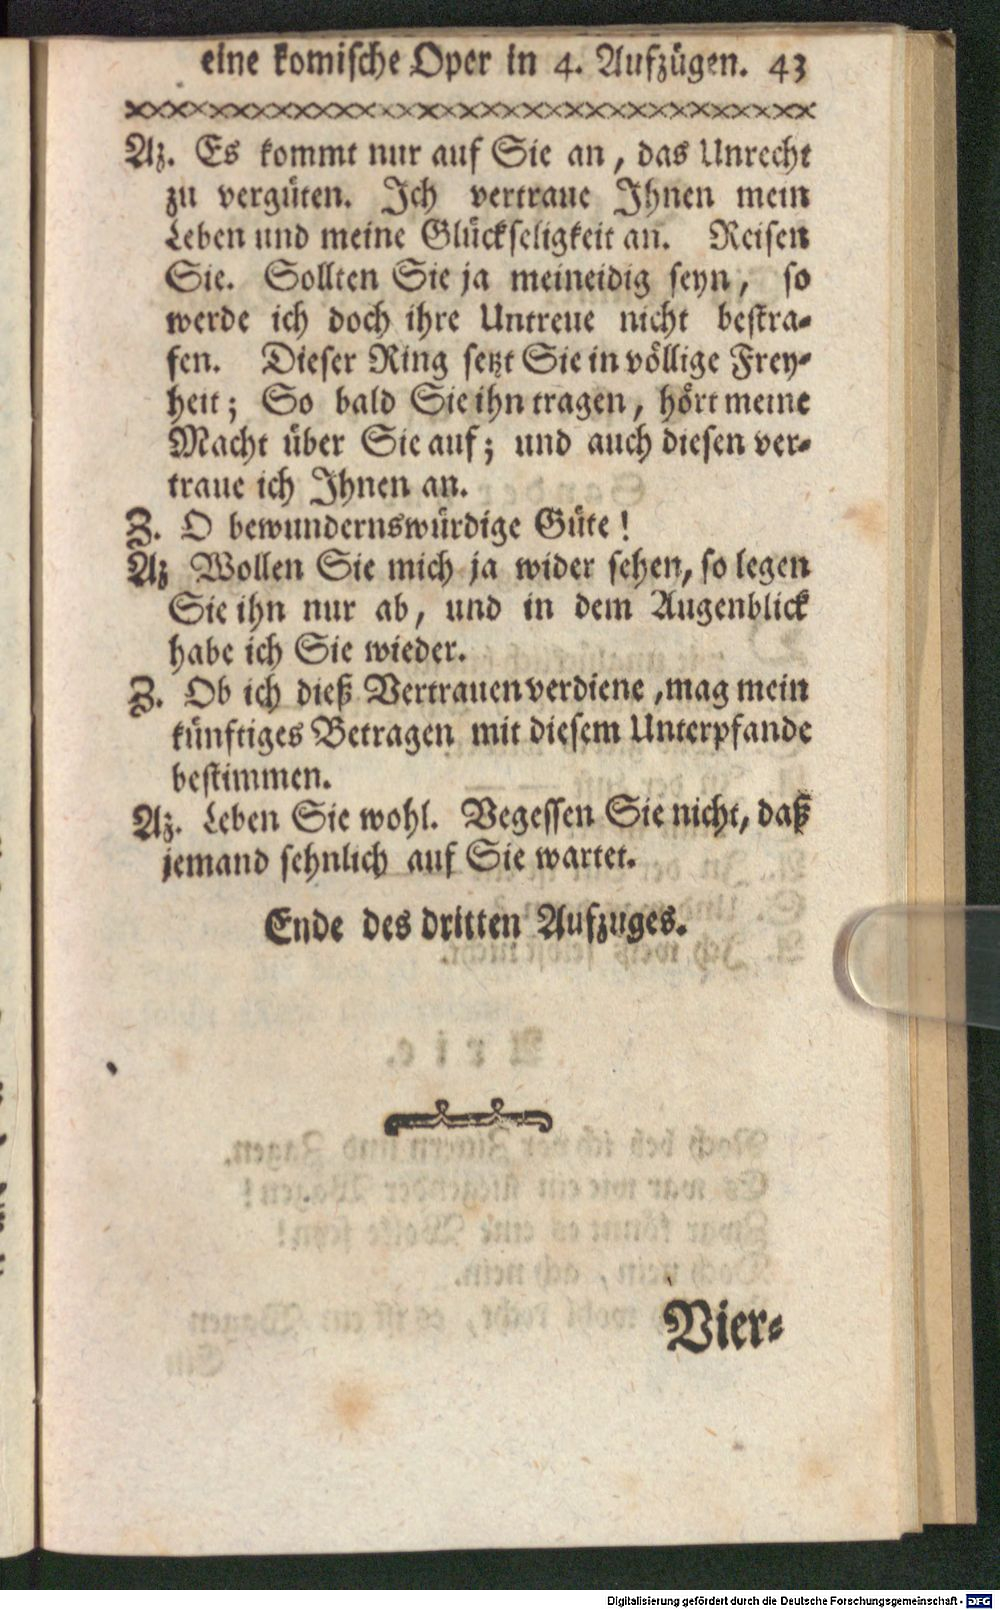 eine komische Oper in 4. Aufzügen. 43
Az. Es kommt nur auf Sie an, das Unrecht
zu vergüten. Ich vertraue Ihnen mein
Leben und meine Glückseligkeit an. Reisen
Sie. Sollten Sie ja meineidig seyn, so
werde ich doch ihre Untreue nicht bestra-
fen. Dieser Ring setzt Sie in völlige Frey-
heit; So bald Sie ihn tragen, hört meine
Macht über Sie auf; und auch diesen ver-
traue ich Ihnen an.
Z. O bewundernswürdige Güte!
Az Wollen Sie mich ja wider sehen, so legen
Sie ihn nur ab, und in dem Augenblick
habe ich Sie wieder.
Z. Ob ich dieß Vertrauen verdiene, mag mein
künftiges Betragen mit diesem Unterpfande
bestimmen.
Az. Leben Sie wohl. Vegessen Sie nicht, daß
jemand sehnlich auf Sie wartet.
Ende des dritten Aufzuges.
Vier-
Digitalisierung gefördert durch die Deutsche Forschungsgemeinschaft - DFG